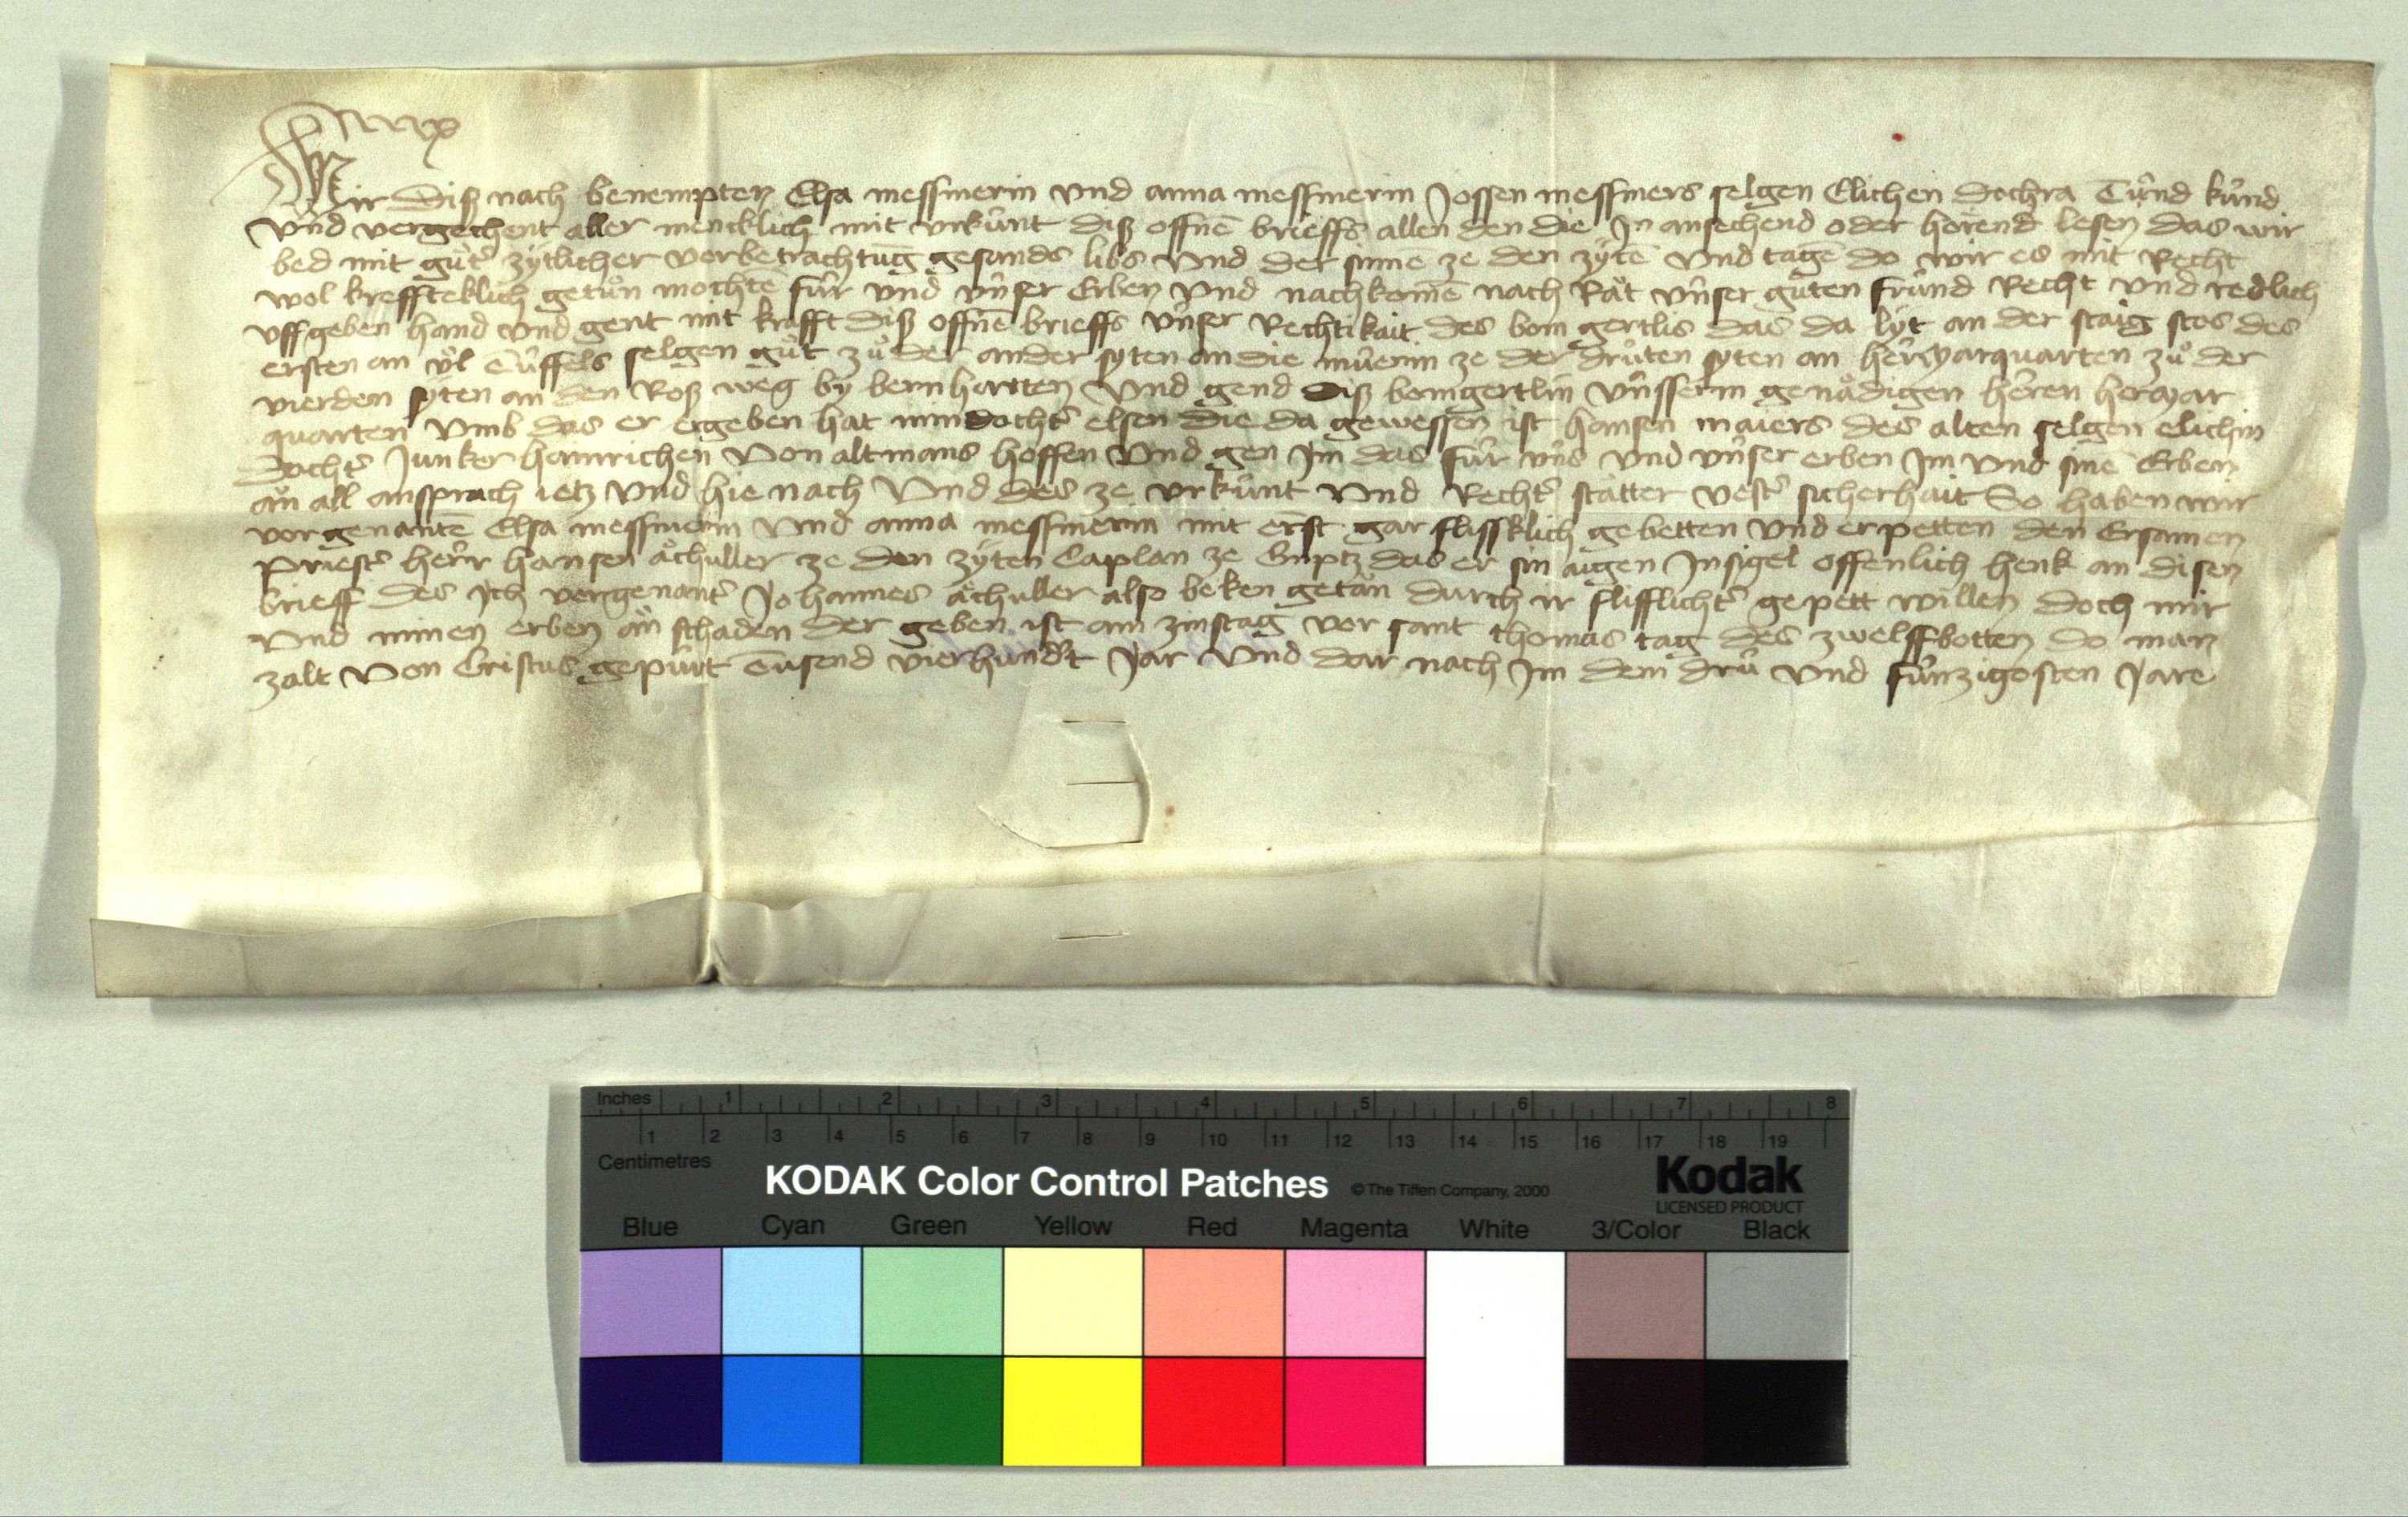 Wir diß nach benempten Elsa messmerin vnd anna messmerin Jossen messmers selgen Elichen dochra Tuͤnd kuͤnd
vnd vergechent aller mencklich mit vrkuͤnt diß offnē brieffs allen den die Jn ansechend oder hoͤrend lesen das wir
bed mit guͤtͤ zytlicher vorbetrachtūg gesunds libs vnd der sinne ze den zytē vnd tagē do wir es mit Recht
wol kreffteklich getuͦn mochtē fuͤr vnd vnͤser Erben vnd nachkomē nach Raͤt vnͤser guͤten fruͤnd Recht vnd redlich
vffgeben hand vnd gent mit krafft diß offnē brieffs vnͤser Rechtikait des bom gertlis das da lyt an der staig stos des
ersten an vͦl Tuͤffels selgen guͦt zuͦ der ander syten an die muͤerin ze der druͤten syten an her Marquarten zuͦ der
vierden syten an den Roß weg by bernhartten vnd gend diß bomgertlin vnͤsserm genaͤdigen heren her Mar
quarten vmb das er ergeben hat min dochtͤ elsen die da gewessen ist hansen maiers des alten selgen elichin
dochtͤ Junker hainrichen von altmans hoffen vnd gen Jm das fuͤr vnͤs vnd vnͤser erben Jm vnd sinē Erben
aͤn all ansprach ietz vnd hie nach vnd des ze vrkuͤnt vnd Rechtͤ statter vestͤ sicherhait So haben wir
vorgenantē Elsa messmerin vnd anna messmerin mit ernst gar flissklich gebetten vnd erpetten den Ersamen
Priestͤ herr hansen aͤchuller ze den zyten Caplan ze Guptz das er sin aigen Jnsigel offenlich henk an disen
brieff des Jch vorgenantͤ Johannes aͤchuller also beken getaͤn durch ir flissslichtͤ gepett willen doch mir
vnd minen erben aͤn schaden der geben ist am zinstag vor sant thomas tag des zwelffbotten do man
zalt von Cristus gepuͤrt Tusend vierhundͤt Jar vnd dar nach Jm dem druͤ vnd fuͤnzigosten Jare
Inches 1 2 3 4 5 6 7 8
1 2 3 4 5 6 7 8 9 10 11 12 13 14 15 16 17 18 19
Centimetres
KODAK Color Control Patches © The Tiffen Company, 2000 Kodak
LICENSED PRODUCT
Blue Cyan Green Yellow Red Magenta White 3/Color Black